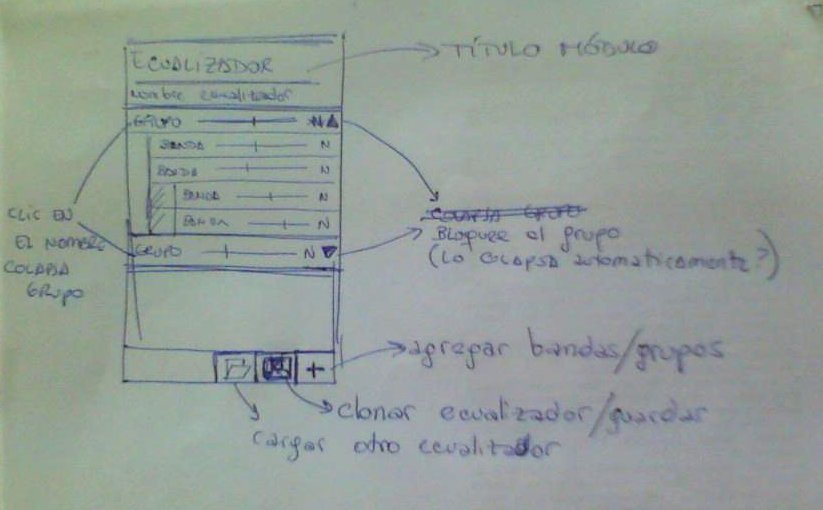 ECUALIZADOR
TÍTULO MÓDULO
nombre ecualizador
GRUPO N
BANDA N
BANDA N
BANDA N
BANDA N
GRUPO N
CLIC EN
EL NOMBRE
COLAPSA
GRUPO
COLAPSA GRUPO
Bloquea el grupo
(Lo colapsa automaticamente?)
+
agregar bandas/grupos
clonar ecualizador/guardar
cargar otro ecualizador